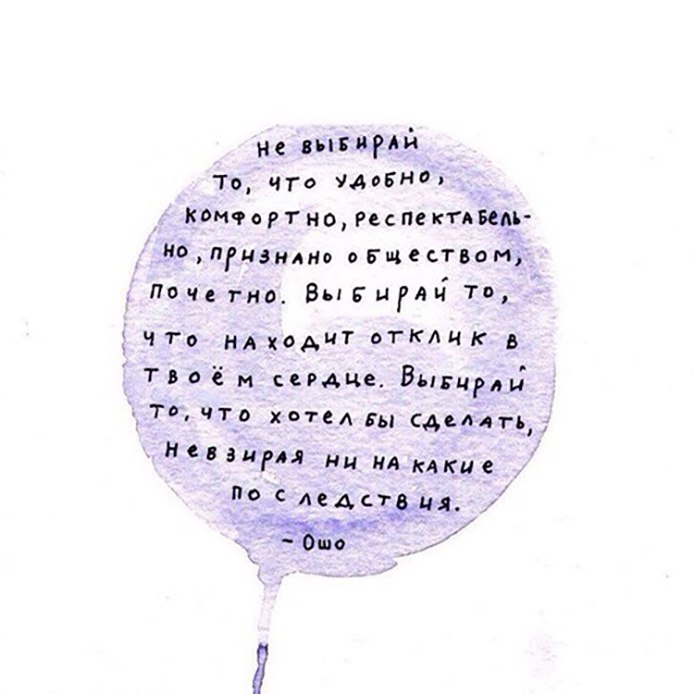 не выбирай
то, что удобно,
комфортно, респектабель-
но, признано обществом,
почетно. Выбирай то,
что находит отклик в
твоём сердце. Выбирай
то, что хотел бы сделать,
невзирая ни на какие
последствия.
- Ошо